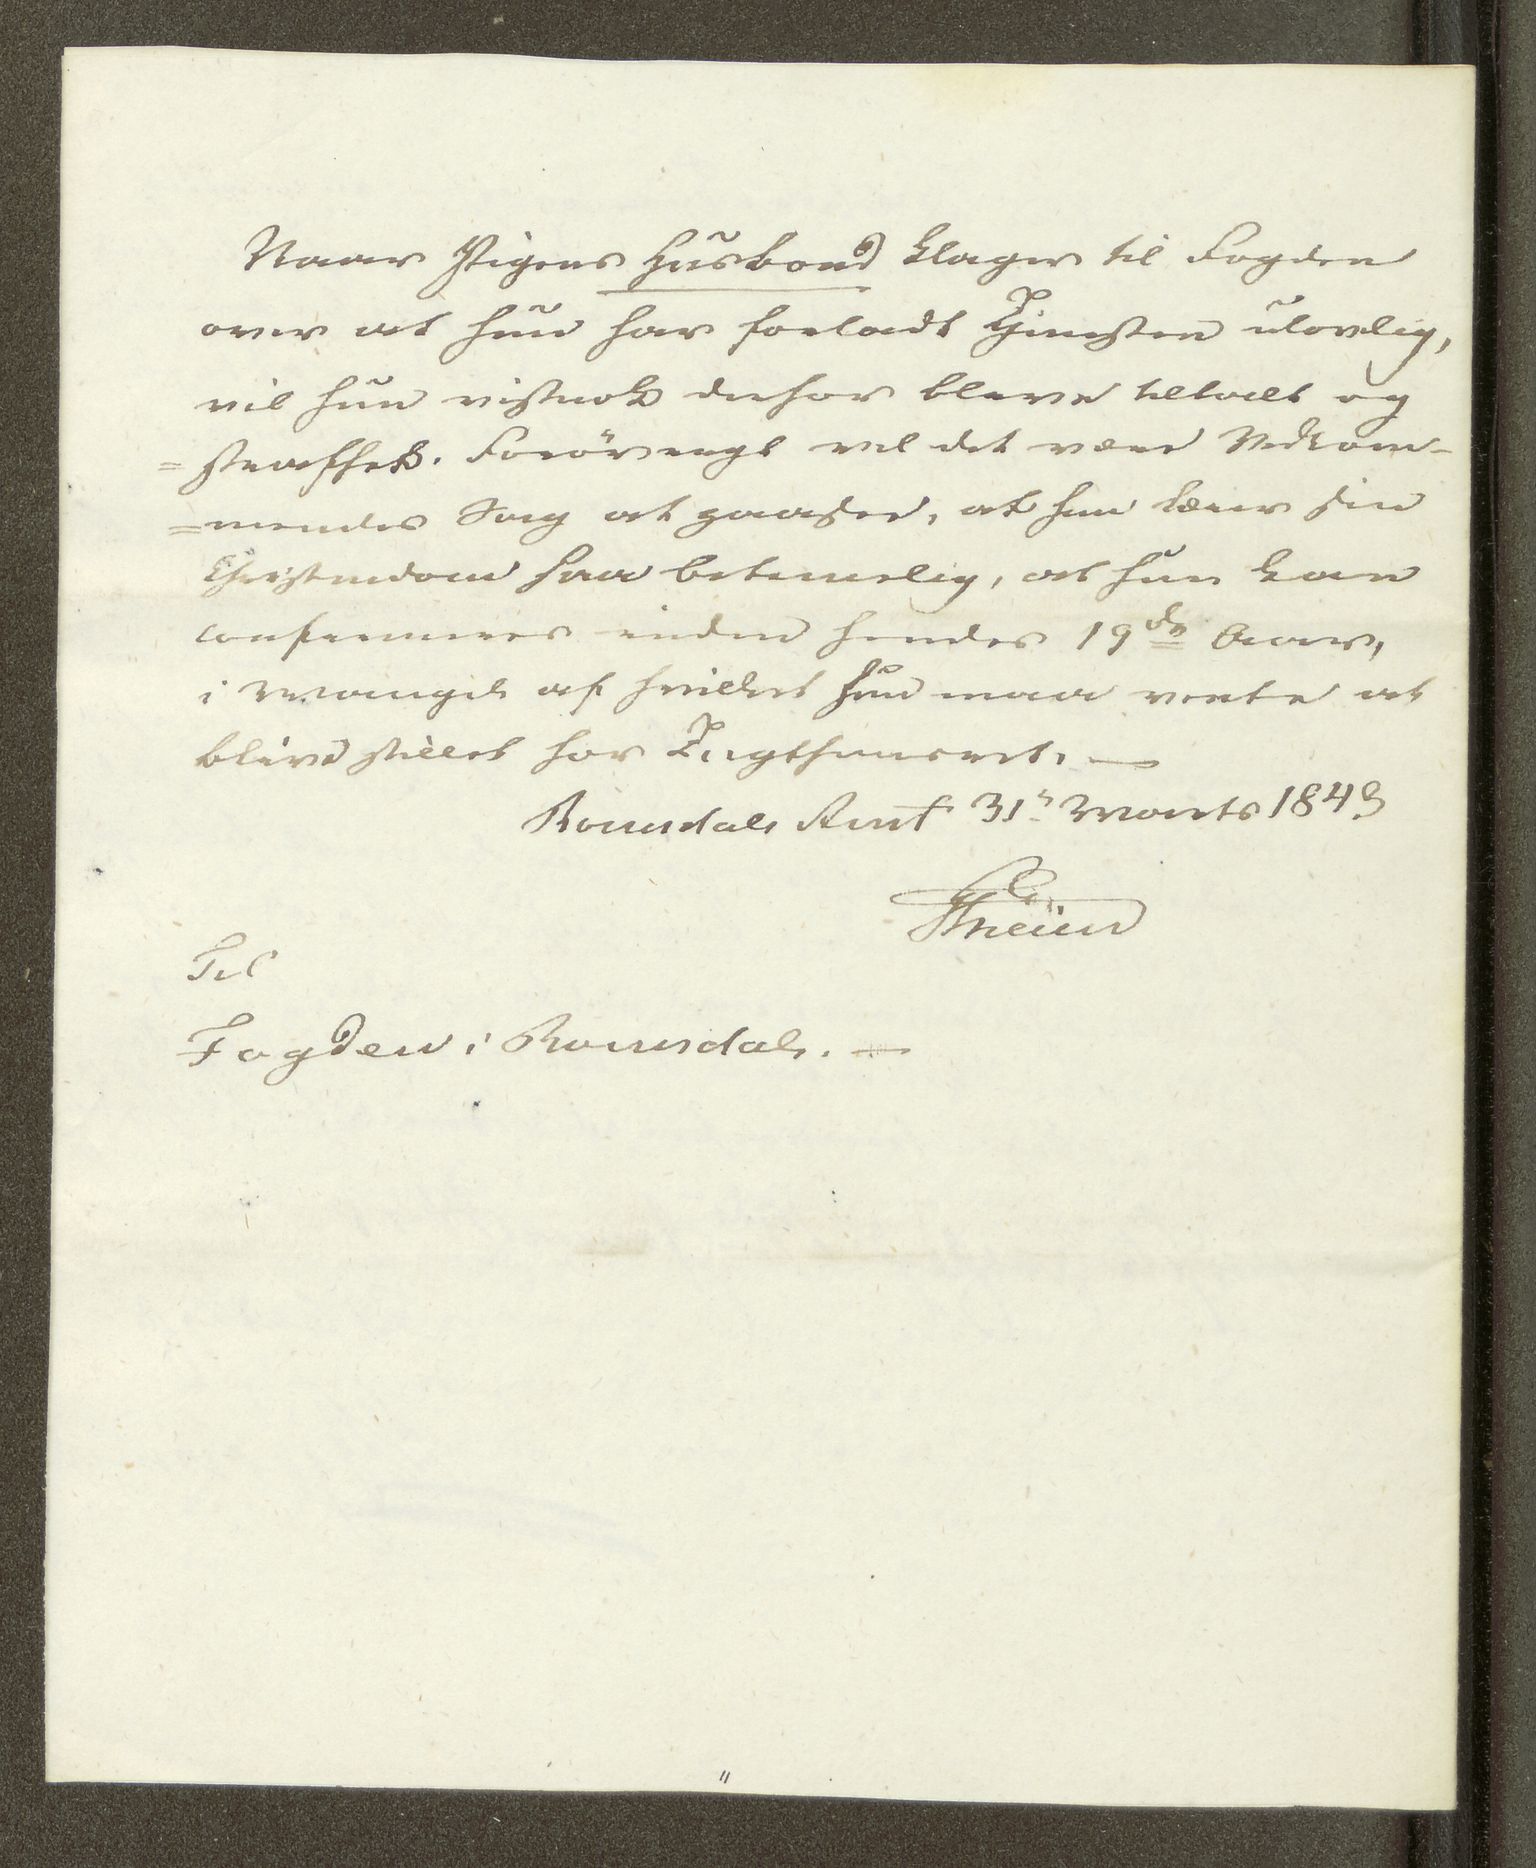 Naar Pigens Husbond klager til Fogden
over at hun har forladt Tjenesten ulovlig,
vil hun vistnok derfor blive tiltalt og
=straffet. Forøvrigt vil det være Vedkom-
=mendes Sag at paasee, at hun lærer sin
Christendom saa betimelig, at hun kan
confirmeres inden hendes 19de Aar,
i Mangel af hvilket hun maa vente at
blive stillet for Tugthuusret. —
Romsdals Amt 31te Marts 1843
Til
Fogden i Romsdal. —